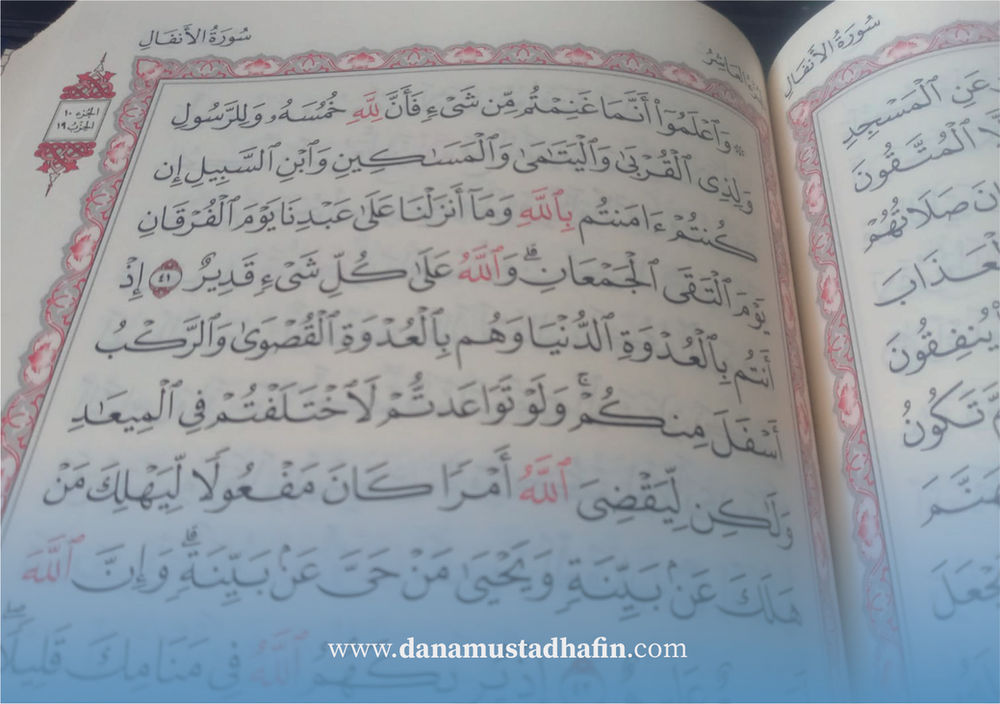 سُورَةُ الأَنفَالِ
الجُزءُ العَاشِرُ
الجُزء ١٠
الحِزب ١٩
۞ وَٱعْلَمُوٓا۟ أَنَّمَا غَنِمْتُم مِّن شَىْءٍ فَأَنَّ لِلَّهِ خُمُسَهُۥ وَلِلرَّسُولِ
وَلِذِى ٱلْقُرْبَىٰ وَٱلْيَتَٰمَىٰ وَٱلْمَسَٰكِينِ وَٱبْنِ ٱلسَّبِيلِ إِن
كُنتُمْ ءَامَنتُم بِٱللَّهِ وَمَآ أَنزَلْنَا عَلَىٰ عَبْدِنَا يَوْمَ ٱلْفُرْقَانِ
يَوْمَ ٱلْتَقَى ٱلْجَمْعَانِ ۗ وَٱللَّهُ عَلَىٰ كُلِّ شَىْءٍ قَدِيرٌ ٤١ إِذْ
أَنتُم بِٱلْعُدْوَةِ ٱلدُّنْيَا وَهُم بِٱلْعُدْوَةِ ٱلْقُصْوَىٰ وَٱلرَّكْبُ
أَسْفَلَ مِنكُمْ ۚ وَلَوْ تَوَاعَدتُّمْ لَٱخْتَلَفْتُمْ فِى ٱلْمِيعَٰدِ
وَلَٰكِن لِّيَقْضِىَ ٱللَّهُ أَمْرًا كَانَ مَفْعُولًا لِّيَهْلِكَ مَنْ
هَلَكَ عَنۢ بَيِّنَةٍ وَيَحْيَىٰ مَنْ حَىَّ عَنۢ بَيِّنَةٍ ۗ وَإِنَّ ٱللَّهَ
يُرِيكَهُمُ ٱللَّهُ فِى مَنَامِكَ قَلِيلًا
سُورَةُ الأَنفَالِ
عَنِ ٱلْمَسْجِدِ
ٱلْمُتَّقُونَ
صَلَاتُهُمْ
يُنفِقُونَ
تَكُونُ
www.danamustadhafin.com